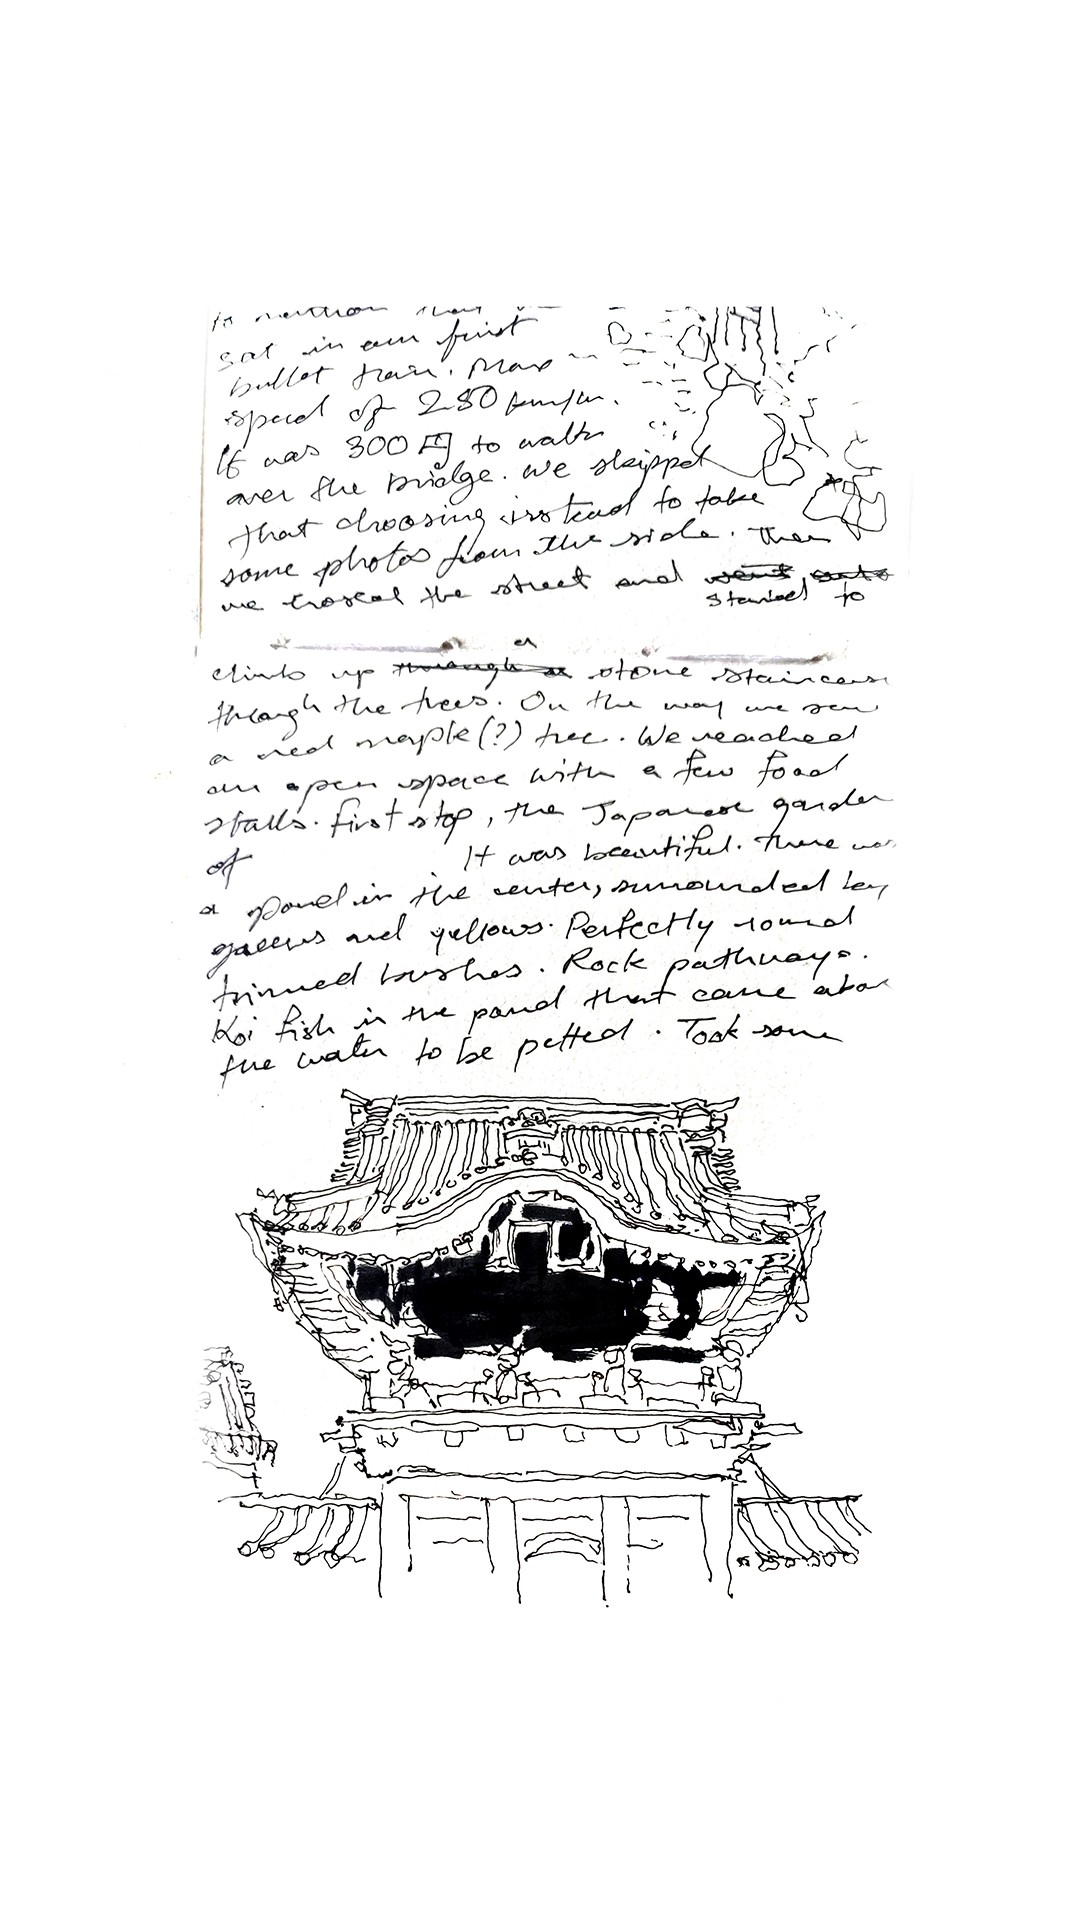 to mention that
sat in our first
bullet train. Max
speed of 280 km/hr.
It was 300 円 to walk
over the bridge. We skipped
that choosing instead to take
some photos from the side. Then
we crossed the street and went onto
started to
a
climb up through a stone staircase
through the trees. On the way we saw
a red maple (?) tree. We reached
an open space with a few food
stalls. First stop, the Japanese garden
of It was beautiful. There was
a pond in the center, surrounded by
greens and yellows. Perfectly round
trimmed bushes. Rock pathways.
Koi fish in the pond that came above
the water to be petted. Took some